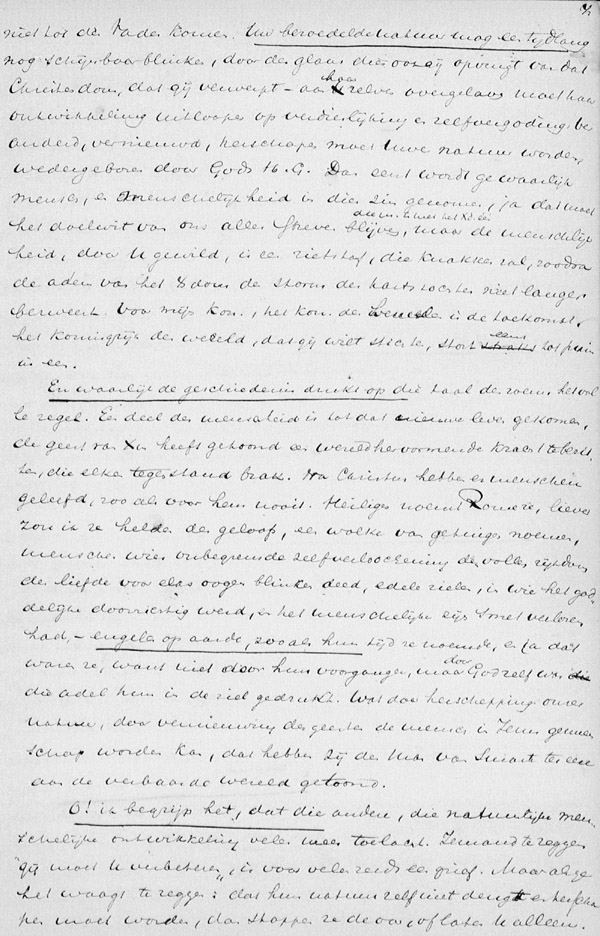 niet tot den Vader komen. Uw beroedelde natuur mag een tijdlang
nog schijnbaar blinken, door de glans die oorzij opvangt van dat
Christendom, dat gij verwerpt – aan haar zelve overgelaten moet haar
ontwikkeling uitloopen op verdierlijking en zelfvergoding. Ver
anderd, vernieuwd, herschapen moet Uwe natuur worden,
wedergeboren door Gods H. G. Dan eerst wordt ge waarlijk
mensch, en menschelijkheid in dien zin genomen, ja dat moet
het doelwit van ons aller streven blijven, maar de menschelijk
heid, door U gewild, is een rietstaf, die knakken zal, zoodra
de adem van het &dom de storm der hartstochten niet langer
bezweert. Voor mijn kon., het kon. der is de toekomst,
het koningrijk der wereld, dat gij wilt stichten, stort eens tot puin
in een.
En waarlijk de geschiedenis drukt op die taal des roems het vol
le zegel. Een deel der menschheid is tot dat nieuwe leven gekomen,
de geest van Xus heeft getoond een wereldhervormende kracht te bezit
ten, die elken tegenstand brak. Na Christus hebben er menschen
geleefd, zoo als voor hem nooit. Heiligen noemt Rome ze, liever
zou ik ze helden des geloofs, een wolke van getuigen noemen,
menschen wier onbegrensde zelfverloochening de volle rijkdom
der liefde voor elks oogen blinken deed, edele zielen, in wie het god
delijke doorzichtig werd, en het menschelijke zijn smet verloren
had, – engelen op aarde, zooals hun tijd ze noemde, en ja dat
waren ze, want niet door hun voorganger, maar door God zelf was
die adel hun in de ziel gedrukt. Wat door herschepping onzer
natuur, door vernieuwing des geestes de mensch in Jezus gemeen
schap worden kan, dat hebben zij den Man van Smarte ter eere
aan de verbaasde wereld getoond.
O! ik begrijp het, dat die andere, die natuurlijke men-
schelijke ontwikkeling velen meer toelacht. Iemand te zeggen
"gij moet U verbeteren", is voor velen reeds een grief. Maar als ge
het waagt te zeggen: dat hun natuur zelf niet deugt en herscha
pen moet worden, dan stoppen ze de oor, of laten U alleen.